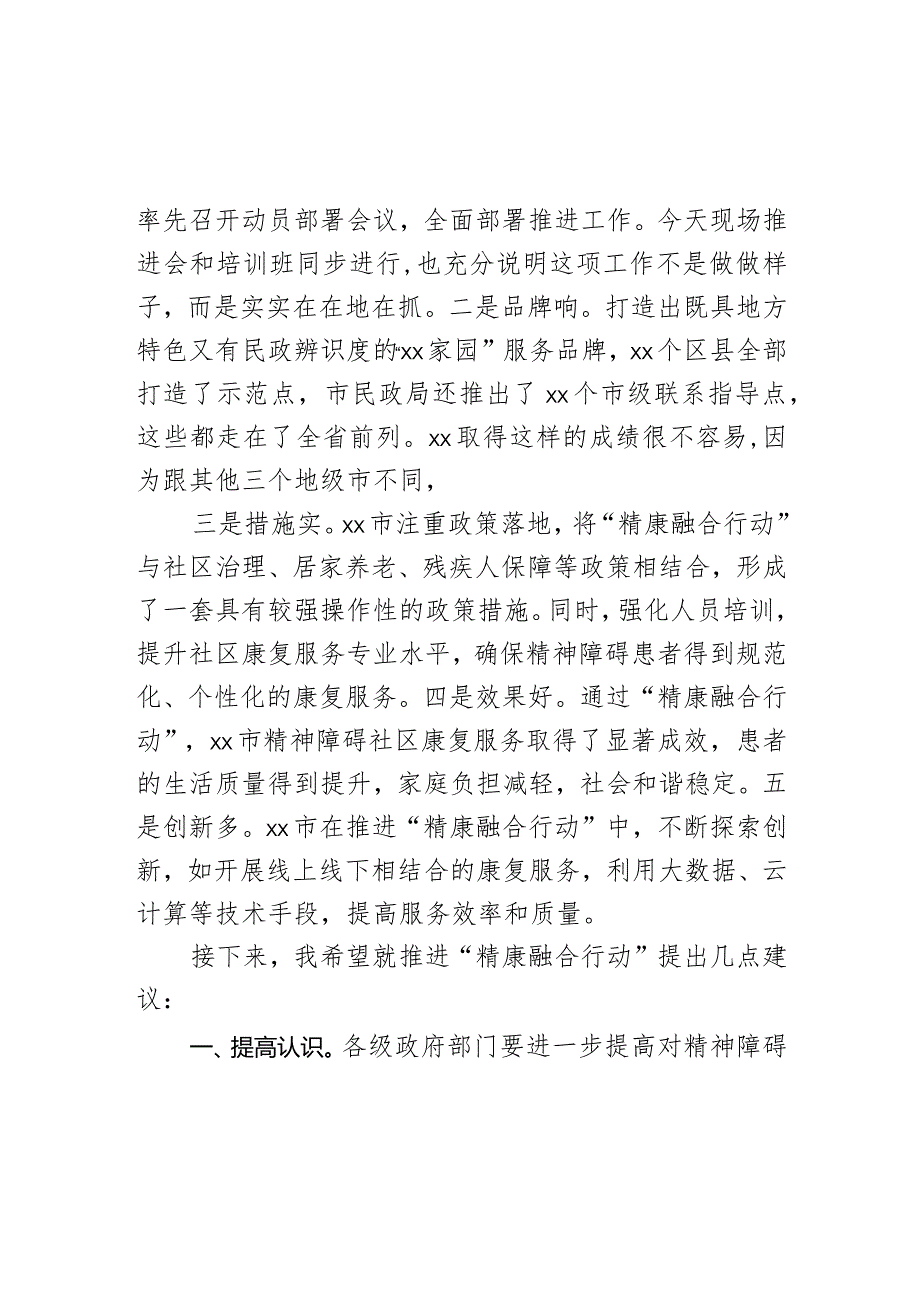 率先召开动员部署会议，全面部署推进工作。今天现场推
进会和培训班同步进行,也充分说明这项工作不是做做样
子，而是实实在在地在抓。二是品牌响。打造出既具地方
特色又有民政辨识度的“xx家园”服务品牌，xx个区县全部
打造了示范点，市民政局还推出了xx个市级联系指导点，
这些都走在了全省前列。xx取得这样的成绩很不容易,因
为跟其他三个地级市不同，
三是措施实。xx市注重政策落地，将“精康融合行动”
与社区治理、居家养老、残疾人保障等政策相结合，形成
了一套具有较强操作性的政策措施。同时，强化人员培训，
提升社区康复服务专业水平，确保精神障碍患者得到规范
化、个性化的康复服务。四是效果好。通过“精康融合行
动”，xx市精神障碍社区康复服务取得了显著成效，患者
的生活质量得到提升，家庭负担减轻，社会和谐稳定。五
是创新多。xx市在推进“精康融合行动”中，不断探索创
新，如开展线上线下相结合的康复服务，利用大数据、云
计算等技术手段，提高服务效率和质量。
接下来，我希望就推进“精康融合行动”提出几点建
议：
一、提高认识。各级政府部门要进一步提高对精神障碍